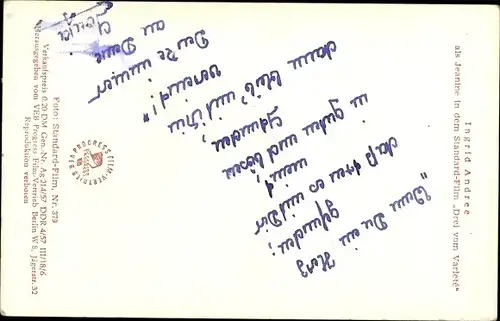 Ingrid Andree
als Jeanine in dem Standard-Film „Drei vom Varieté“
"Wenn Du ein Herz
gefunden,
daß treu es mit Dir
meint,
in guten und bösen
Stunden,
dann bleib' mit ihm
vereint!"
Den Re immer
an Deine
Foto: Standard-Film, Nr. 379
PROGRESS FILM-VERTRIEB
Verkaufspreis 0.20 DM Gen.-Nr. Ag 214/57 DDR 4/57 III/18/6
Herausgegeben vom VEB Progress Film-Vertrieb, Berlin W 8, Jägerstr. 32
Reproduktion verboten